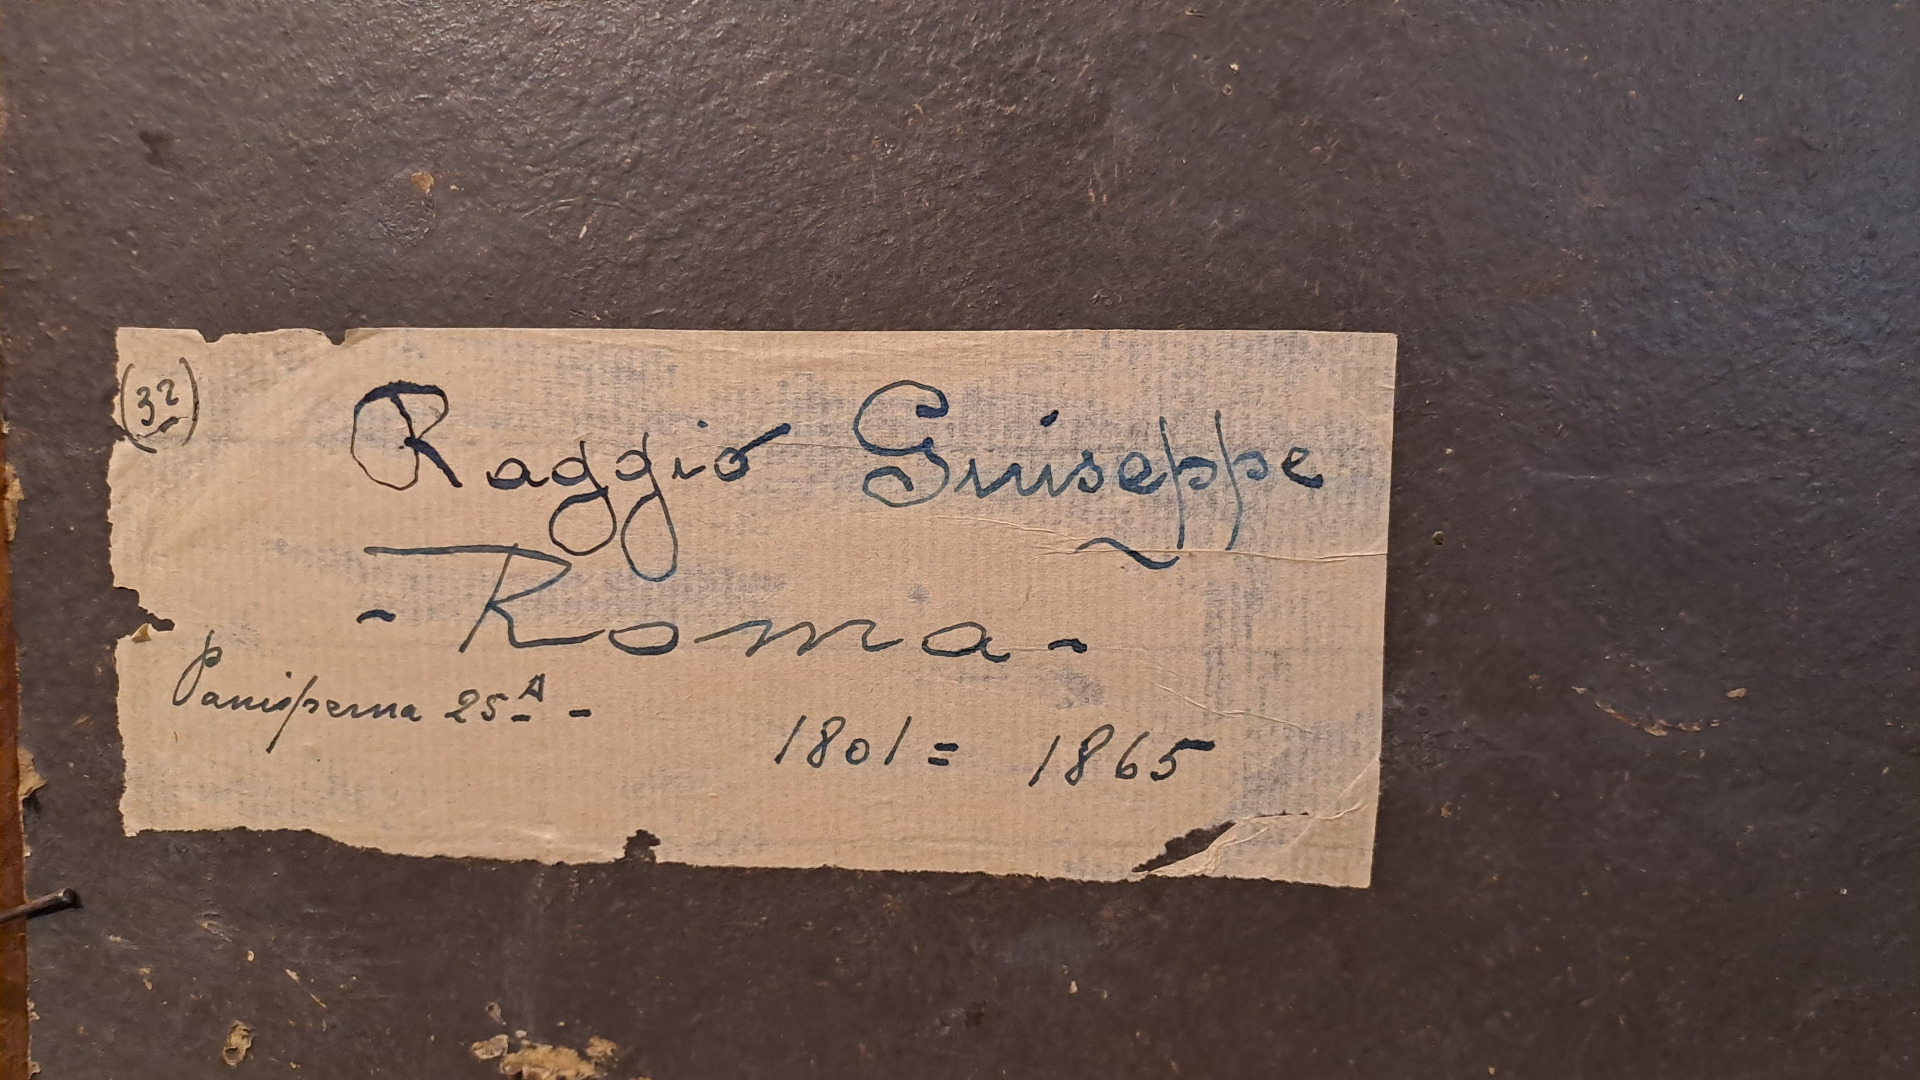 (32)
Raggio Giuseppe
- Roma -
Panisperna 25A -
1801 = 1865